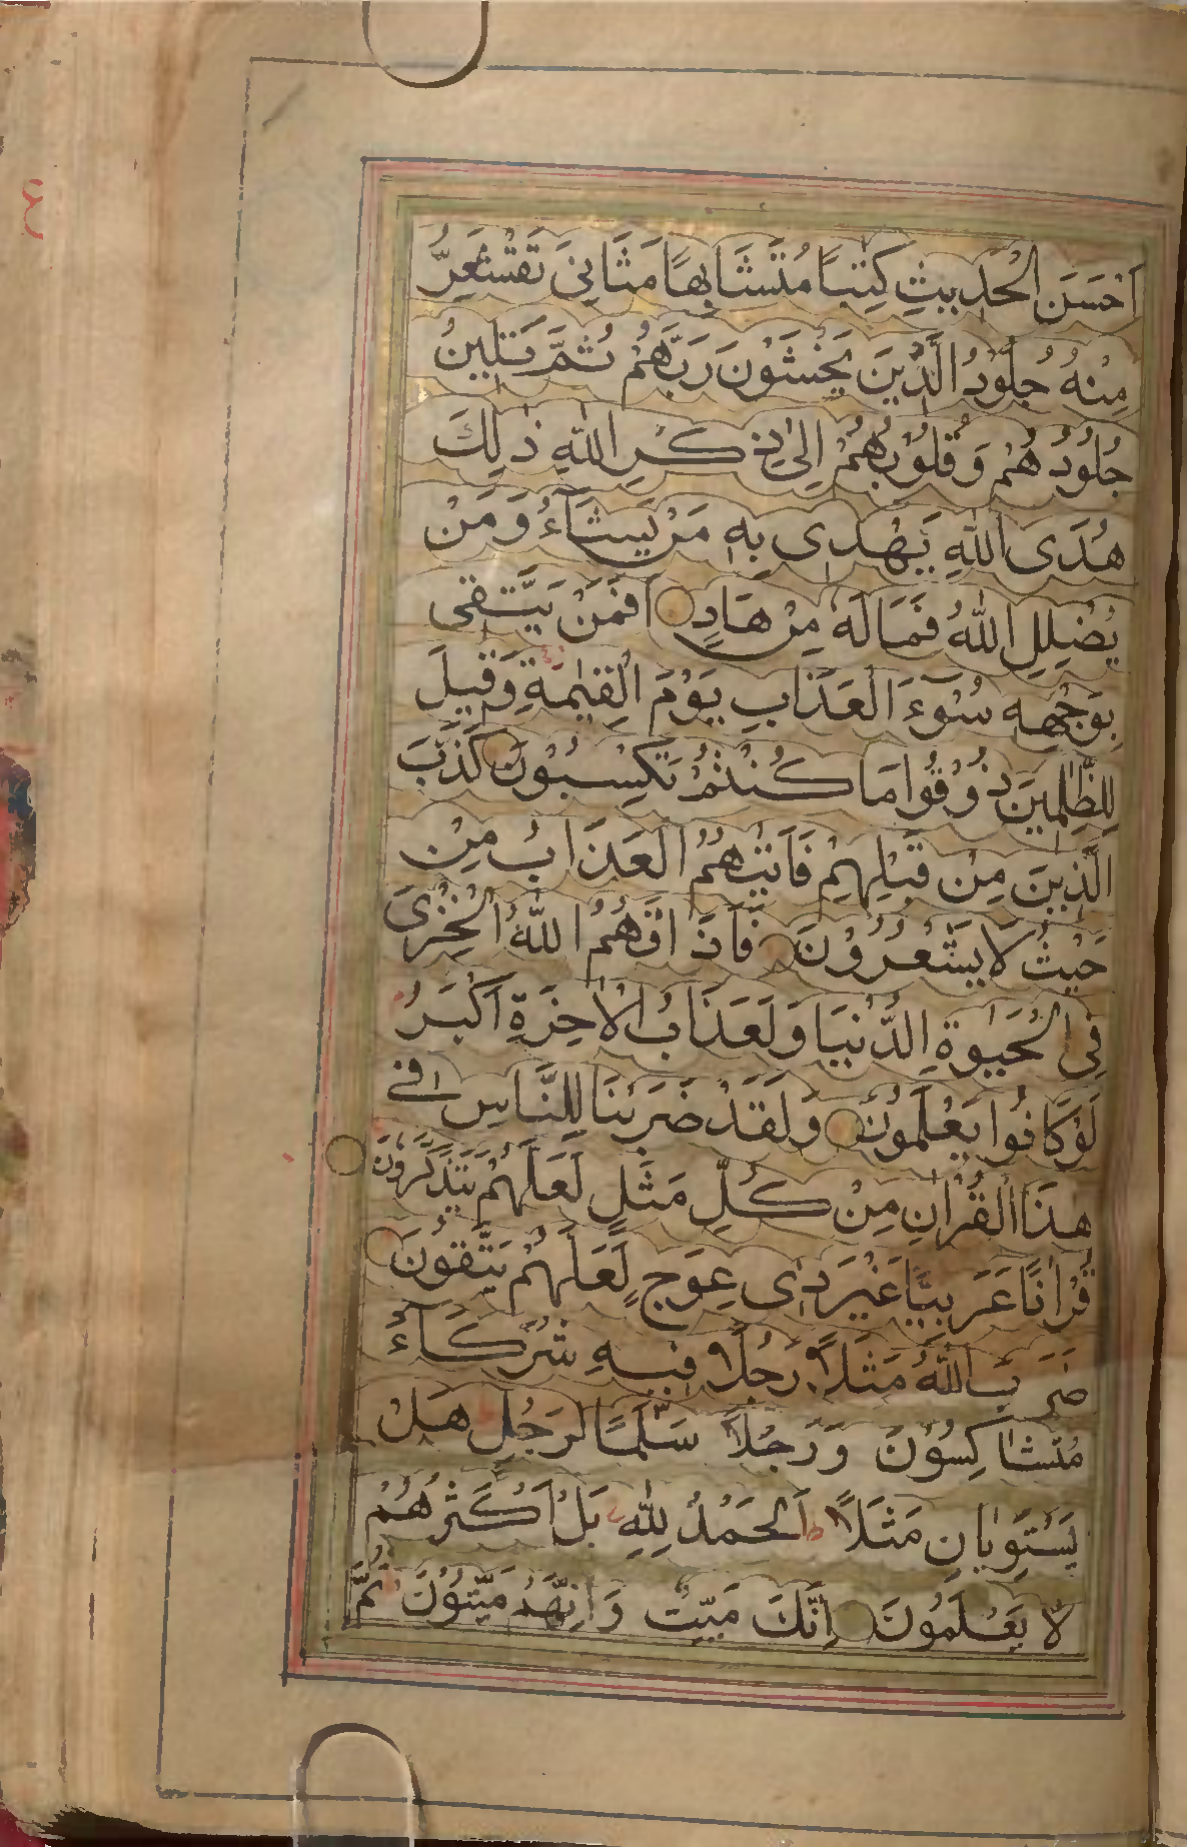 اَحْسَنَ الْحَدِيثِ كِتٰبًا مُتَشَابِهًا مَثَانِيَ تَقْشَعِرُّ
مِنْهُ جُلُوْدُ الَّذِيْنَ يَخْشَوْنَ رَبَّهُمْ ثُمَّ تَلِيْنُ
جُلُوْدُهُمْ وَقُلُوْبُهُمْ اِلٰى ذِكْرِ اللّٰهِ ذٰلِكَ
هُدَى اللّٰهِ يَهْدِى بِهٖ مَنْ يَشَآءُ وَمَنْ
يُضْلِلِ اللّٰهُ فَمَالَهٗ مِنْ هَادٍ اَفَمَنْ يَتَّقِى
بِوَجْهِهٖ سُوْٓءَ الْعَذَابِ يَوْمَ الْقِيٰمَةِ وَقِيْلَ
لِلظّٰلِمِيْنَ ذُوْقُوْا مَا كُنْتُمْ تَكْسِبُوْنَ كَذَّبَ
الَّذِيْنَ مِنْ قَبْلِهِمْ فَاَتٰىهُمُ الْعَذَابُ مِنْ
حَيْثُ لَا يَشْعُرُوْنَ فَاَذَاقَهُمُ اللّٰهُ الْخِزْىَ
فِى الْحَيٰوةِ الدُّنْيَا وَلَعَذَابُ الْاٰخِرَةِ اَكْبَرُ
لَوْ كَانُوْا يَعْلَمُوْنَ وَلَقَدْ ضَرَبْنَا لِلنَّاسِ فِى
هٰذَا الْقُرْاٰنِ مِنْ كُلِّ مَثَلٍ لَعَلَّهُمْ يَتَذَكَّرُوْنَ
قُرْاٰنًا عَرَبِيًّا غَيْرَ ذِى عِوَجٍ لَعَلَّهُمْ يَتَّقُوْنَ
ضَرَبَ اللّٰهُ مَثَلًا رَجُلًا فِيْهِ شُرَكَآءُ
مُتَشَاكِسُوْنَ وَرَجُلًا سَلَمًا لِرَجُلٍ هَلْ
يَسْتَوِيَانِ مَثَلًا ط اَلْحَمْدُ لِلّٰهِ بَلْ اَكْثَرُهُمْ
لَا يَعْلَمُوْنَ اِنَّكَ مَيِّتٌ وَاِنَّهُمْ مَيِّتُوْنَ ثُمَّ